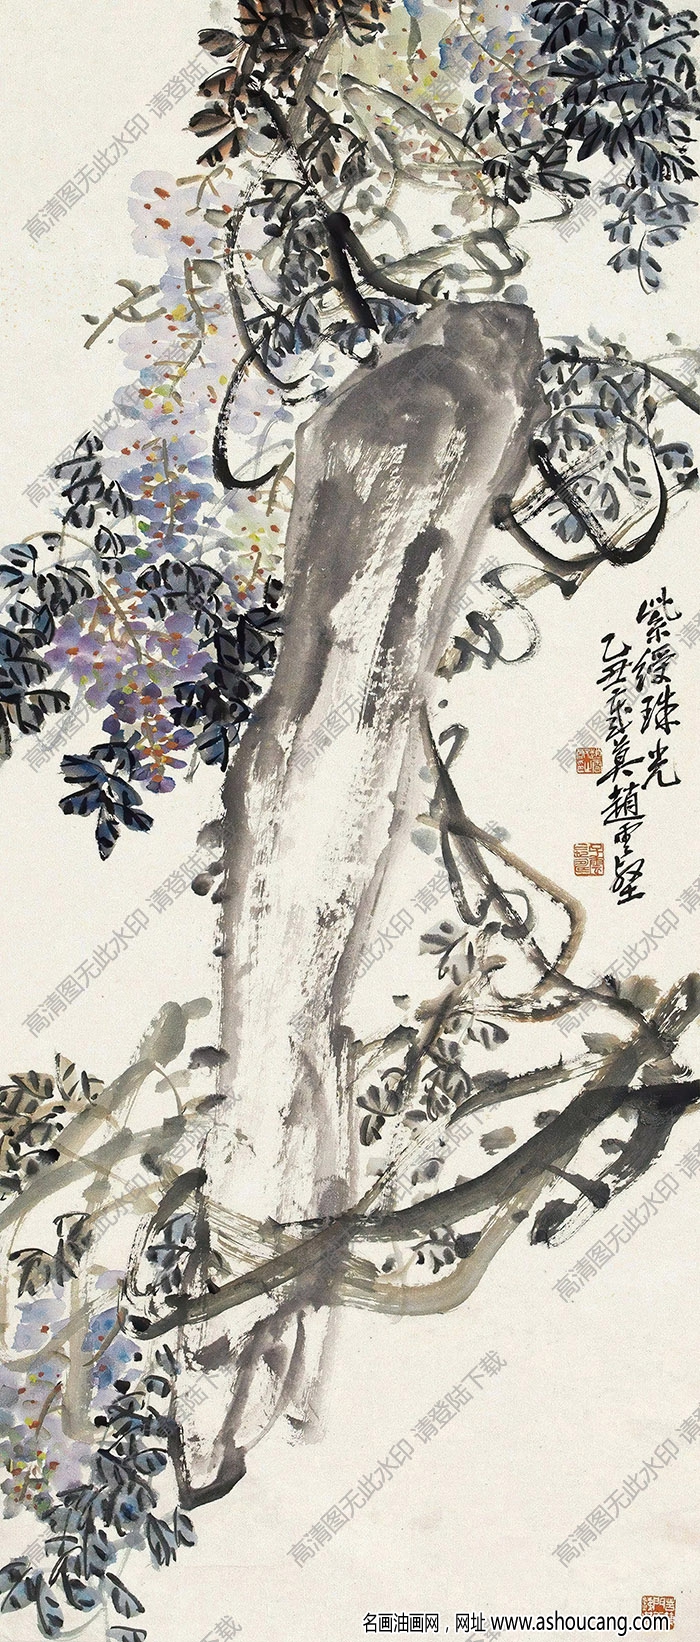 紫綬珠光
乙丑
趙雲壑
高清图无此水印 请登陆下载
名画油画网，网址 www.ashoucang.com